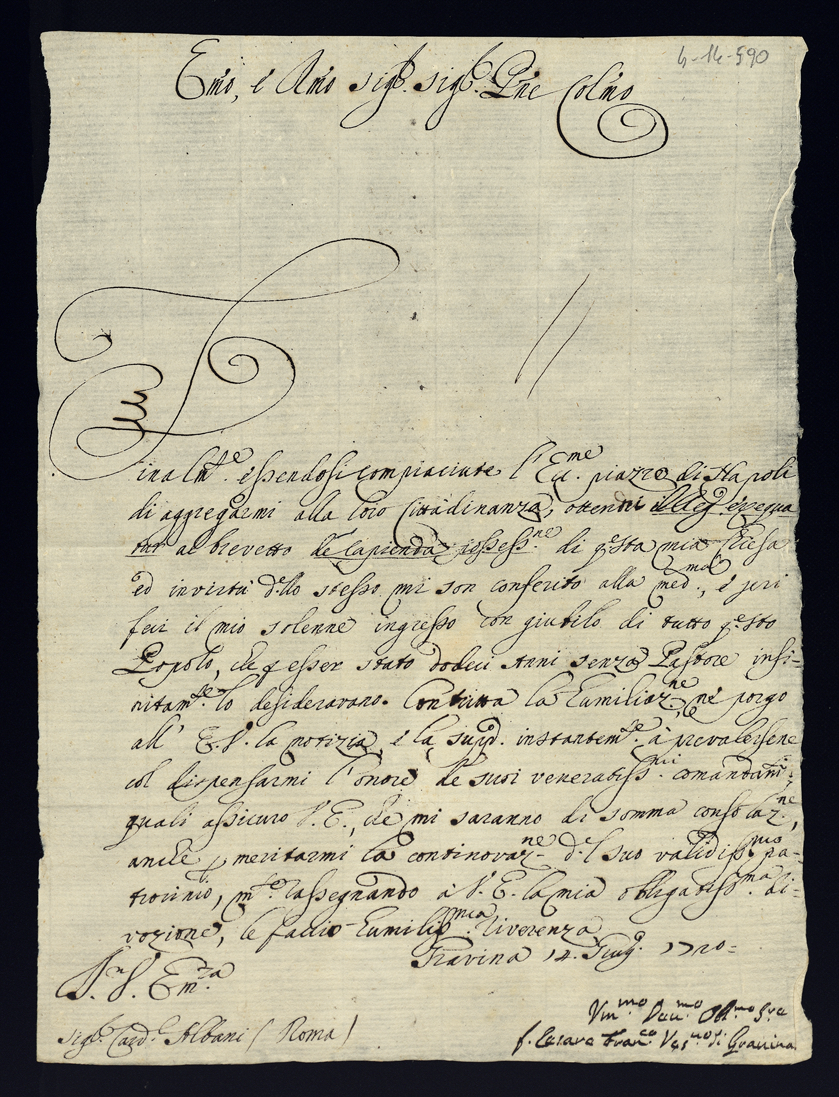 6-14-590
Emo, e Rmo sigr. sigr. Pne Colmo
Finalmte. essendosi compiaciute l'Ecc.me piazze di Napoli
di aggregarmi alla loro Cittadinanza, ottenni il Reg. exequa
tur al brevetto possess.ne di qsta mia Chiesa
ed in virtù dello stesso mi son conferito alla med.ma, e jeri
feci il mio solenne ingresso con giubilo di tutto qsto
Popolo, che p esser stato dodeci Anni senza Pastore infi-
nitam.te lo desideravano. Con tutta la humiliaz.ne, ne porgo
all' E. V. la notizia, e la supp.co instantem.te à prevalersene
col dispensarmi l'onore de suoi veneratiss.mi comandam.ti;
quali assicuro V. E., che mi saranno di somma consolaz.ne,
anche p meritarmi la continovaz.ne del suo validiss.mo pa-
trocinio, m.tre rassegnando à V. E. la mia obligatiss.ma di-
vozione, le faccio humiliss.ma riverenza
Gravina 14. Giug. 1720=
D. V. Em.za
Sigr. Card. Albani (Roma)
Um.mo Deu.mo Obl.mo Sre
f. Cesare Fran.co Ves.vo di Gravina